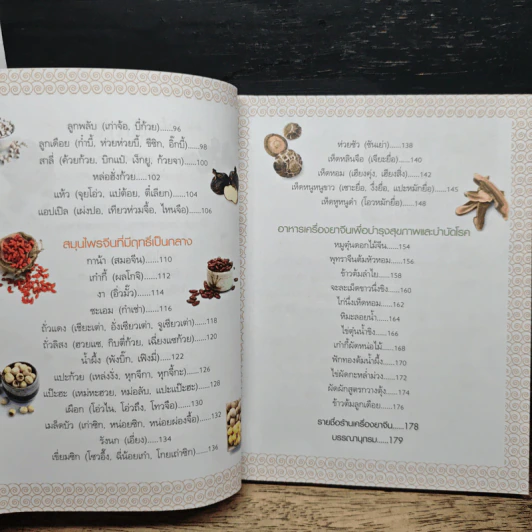 ลูกพลับ (เก่าจ้อ, ปี่ก้วย).....96
ลูกเดือย (กำบี้, ห่วยห่วยบี้, ชีซิก, อี้กบี้).....98
สาลี่ (ด้วยก้วย, ปักแป้, เง็กยู, ก้วยจา).....100
หล่อฮังก้วย.....102
แห้ว (จุยโอ่ว, แบ่ต้อย, ตี่เลียก).....104
แอปเปิล (เผ่งปอ, เทียวห่วมจื้อ, ไหนจือ).....106
สมุนไพรจีนที่มีฤทธิ์เป็นกลาง
กาน้า (สมอจีน).....110
เก๋ากี้ (ผลโกจิ).....112
งา (อิ่วมั้ว).....114
ชะเอม (กำเช่า).....116
ถั่วแดง (เชียะเต่า, อั่งเชียวเต่า, จูเชียวเต่า).....118
ถั่วลิสง (ฮวยแซ, กิบตี่ก้วย, เฉี่ยงแซก้วย).....120
น้ำผึ้ง (พังบิ๊ก, เฟิงมี่).....122
แปะก้วย (เหล่งงั่ง, ทุกจีกา, ทุกจี้กะ).....126
แป๊ะฮะ (เหม่หะฮวย, หม่อลับ, แปะแป๊ะฮะ).....128
เผือก (โอ่วไน, โอ่วถึง, โทวจือ).....130
เมล็ดบัว (เก่าซิก, หน่อยซิก, หน่อยผ่องจื้อ).....132
รังนก (เอี่ยง).....134
เซี่ยมซิก (ไซวอึ้ง, ฉี่น้อยเก๋า, โกยเถ่าซิก).....136
ห่วยซัว (ซันเย่า).....138
เห็ดหลินจือ (เจียะเยื่อ).....140
เห็ดหอม (เฮียงคุ่ง, เฮียงสิ่ง).....142
เห็ดหนูหนูขาว (เซาะยื่อ, งิ่งยื่อ, แปะหมักยื่อ).....145
เห็ดหูหนูดำ (โอวหมักยื่อ).....148
อาหารเครื่องยาจีนเพื่อบำรุงสุขภาพและบำบัดโรค
หมูตุ๋นดอกไม้จีน.....154
พุทราจีนต้มหัวหอม.....156
ข้าวต้มลำไย.....158
จะละเม็ดขาวนึ่งขิง.....160
ไก่นึ่งเห็ดหอม.....162
หิมะลอยน้ำ.....164
ไข่ตุ๋นน้ำขิง.....166
เก๋ากี้ผัดหน่อไม้.....168
ฟักทองต้มน้ำผึ้ง.....170
ไข่ผัดกะหล่ำม่วง.....172
ผัดผักสูตรกวางตุ้ง.....174
ข้าวต้มลูกเดือย.....176
รายชื่อร้านเครื่องยาจีน.....178
บรรณานุกรม.....179